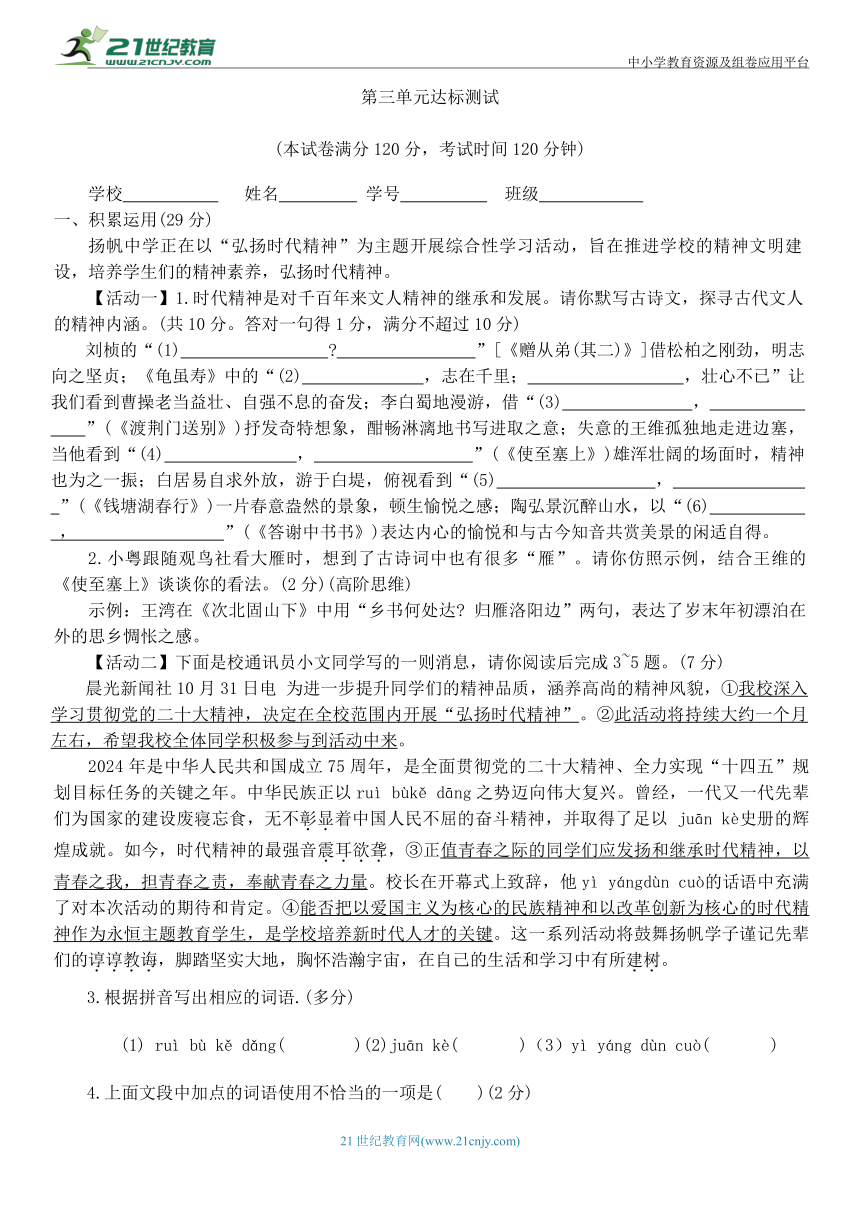 21世纪教育
WWW.21CNJY.COM
中小学教育资源及组卷应用平台
第三单元达标测试
(本试卷满分120分，考试时间120分钟)
学校 姓名 学号 班级
一、积累运用(29分)
扬帆中学正在以“弘扬时代精神”为主题开展综合性学习活动，旨在推进学校的精神文明建
设，培养学生们的精神素养，弘扬时代精神。
【活动一】1.时代精神是对千百年来文人精神的继承和发展。请你默写古诗文，探寻古代文人
的精神内涵。(共10分。答对一句得1分，满分不超过10分)
刘桢的“(1) ? ”[《赠从弟(其二)》]借松柏之刚劲，明志
向之坚贞；《龟虽寿》中的“(2) ，志在千里； ，壮心不已”让
我们看到曹操老当益壮、自强不息的奋发；李白蜀地漫游，借“(3) ，
”(《渡荆门送别》)抒发奇特想象，酣畅淋漓地书写进取之意；失意的王维孤独地走进边塞，
当他看到“(4) ， ”(《使至塞上》)雄浑壮阔的场面时，精神
也为之一振；白居易自求外放，游于白堤，俯视看到“(5) ，
”(《钱塘湖春行》)一片春意盎然的景象，顿生愉悦之感；陶弘景沉醉山水，以“(6)
， ”(《答谢中书书》)表达内心的愉悦和与古今知音共赏美景的闲适自得。
2.小粤跟随观鸟社看大雁时，想到了古诗词中也有很多“雁”。请你仿照示例，结合王维的
《使至塞上》谈谈你的看法。(2分)(高阶思维)
示例：王湾在《次北固山下》中用“乡书何处达? 归雁洛阳边”两句，表达了岁末年初漂泊在
外的思乡惆怅之感。
【活动二】下面是校通讯员小文同学写的一则消息，请你阅读后完成3~5题。(7分)
晨光新闻社10月31日电 为进一步提升同学们的精神品质，涵养高尚的精神风貌，①我校深入
学习贯彻党的二十大精神，决定在全校范围内开展“弘扬时代精神”。②此活动将持续大约一个月
左右，希望我校全体同学积极参与到活动中来。
2024年是中华人民共和国成立75周年，是全面贯彻党的二十大精神、全力实现“十四五”规
划目标任务的关键之年。中华民族正以ruì bùkě dāng之势迈向伟大复兴。曾经，一代又一代先辈
们为国家的建设废寝忘食，无不彰显着中国人民不屈的奋斗精神，并取得了足以 juān kè史册的辉
煌成就。如今，时代精神的最强音震耳欲聋，③正值青春之际的同学们应发扬和继承时代精神，以
青春之我，担青春之责，奉献青春之力量。校长在开幕式上致辞，他yì yángdùn cuò的话语中充满
了对本次活动的期待和肯定。④能否把以爱国主义为核心的民族精神和以改革创新为核心的时代精
神作为永恒主题教育学生，是学校培养新时代人才的关键。这一系列活动将鼓舞扬帆学子谨记先辈
们的谆谆教诲，脚踏坚实大地，胸怀浩瀚宇宙，在自己的生活和学习中有所建树。
3.根据拼音写出相应的词语.(多分)
(1) ruì bù kě dāng( )(2)juān kè( )（3）yì yáng dùn cuò( )
4.上面文段中加点的词语使用不恰当的一项是( )(2分)
21世纪教育网(www.21cnjy.com)